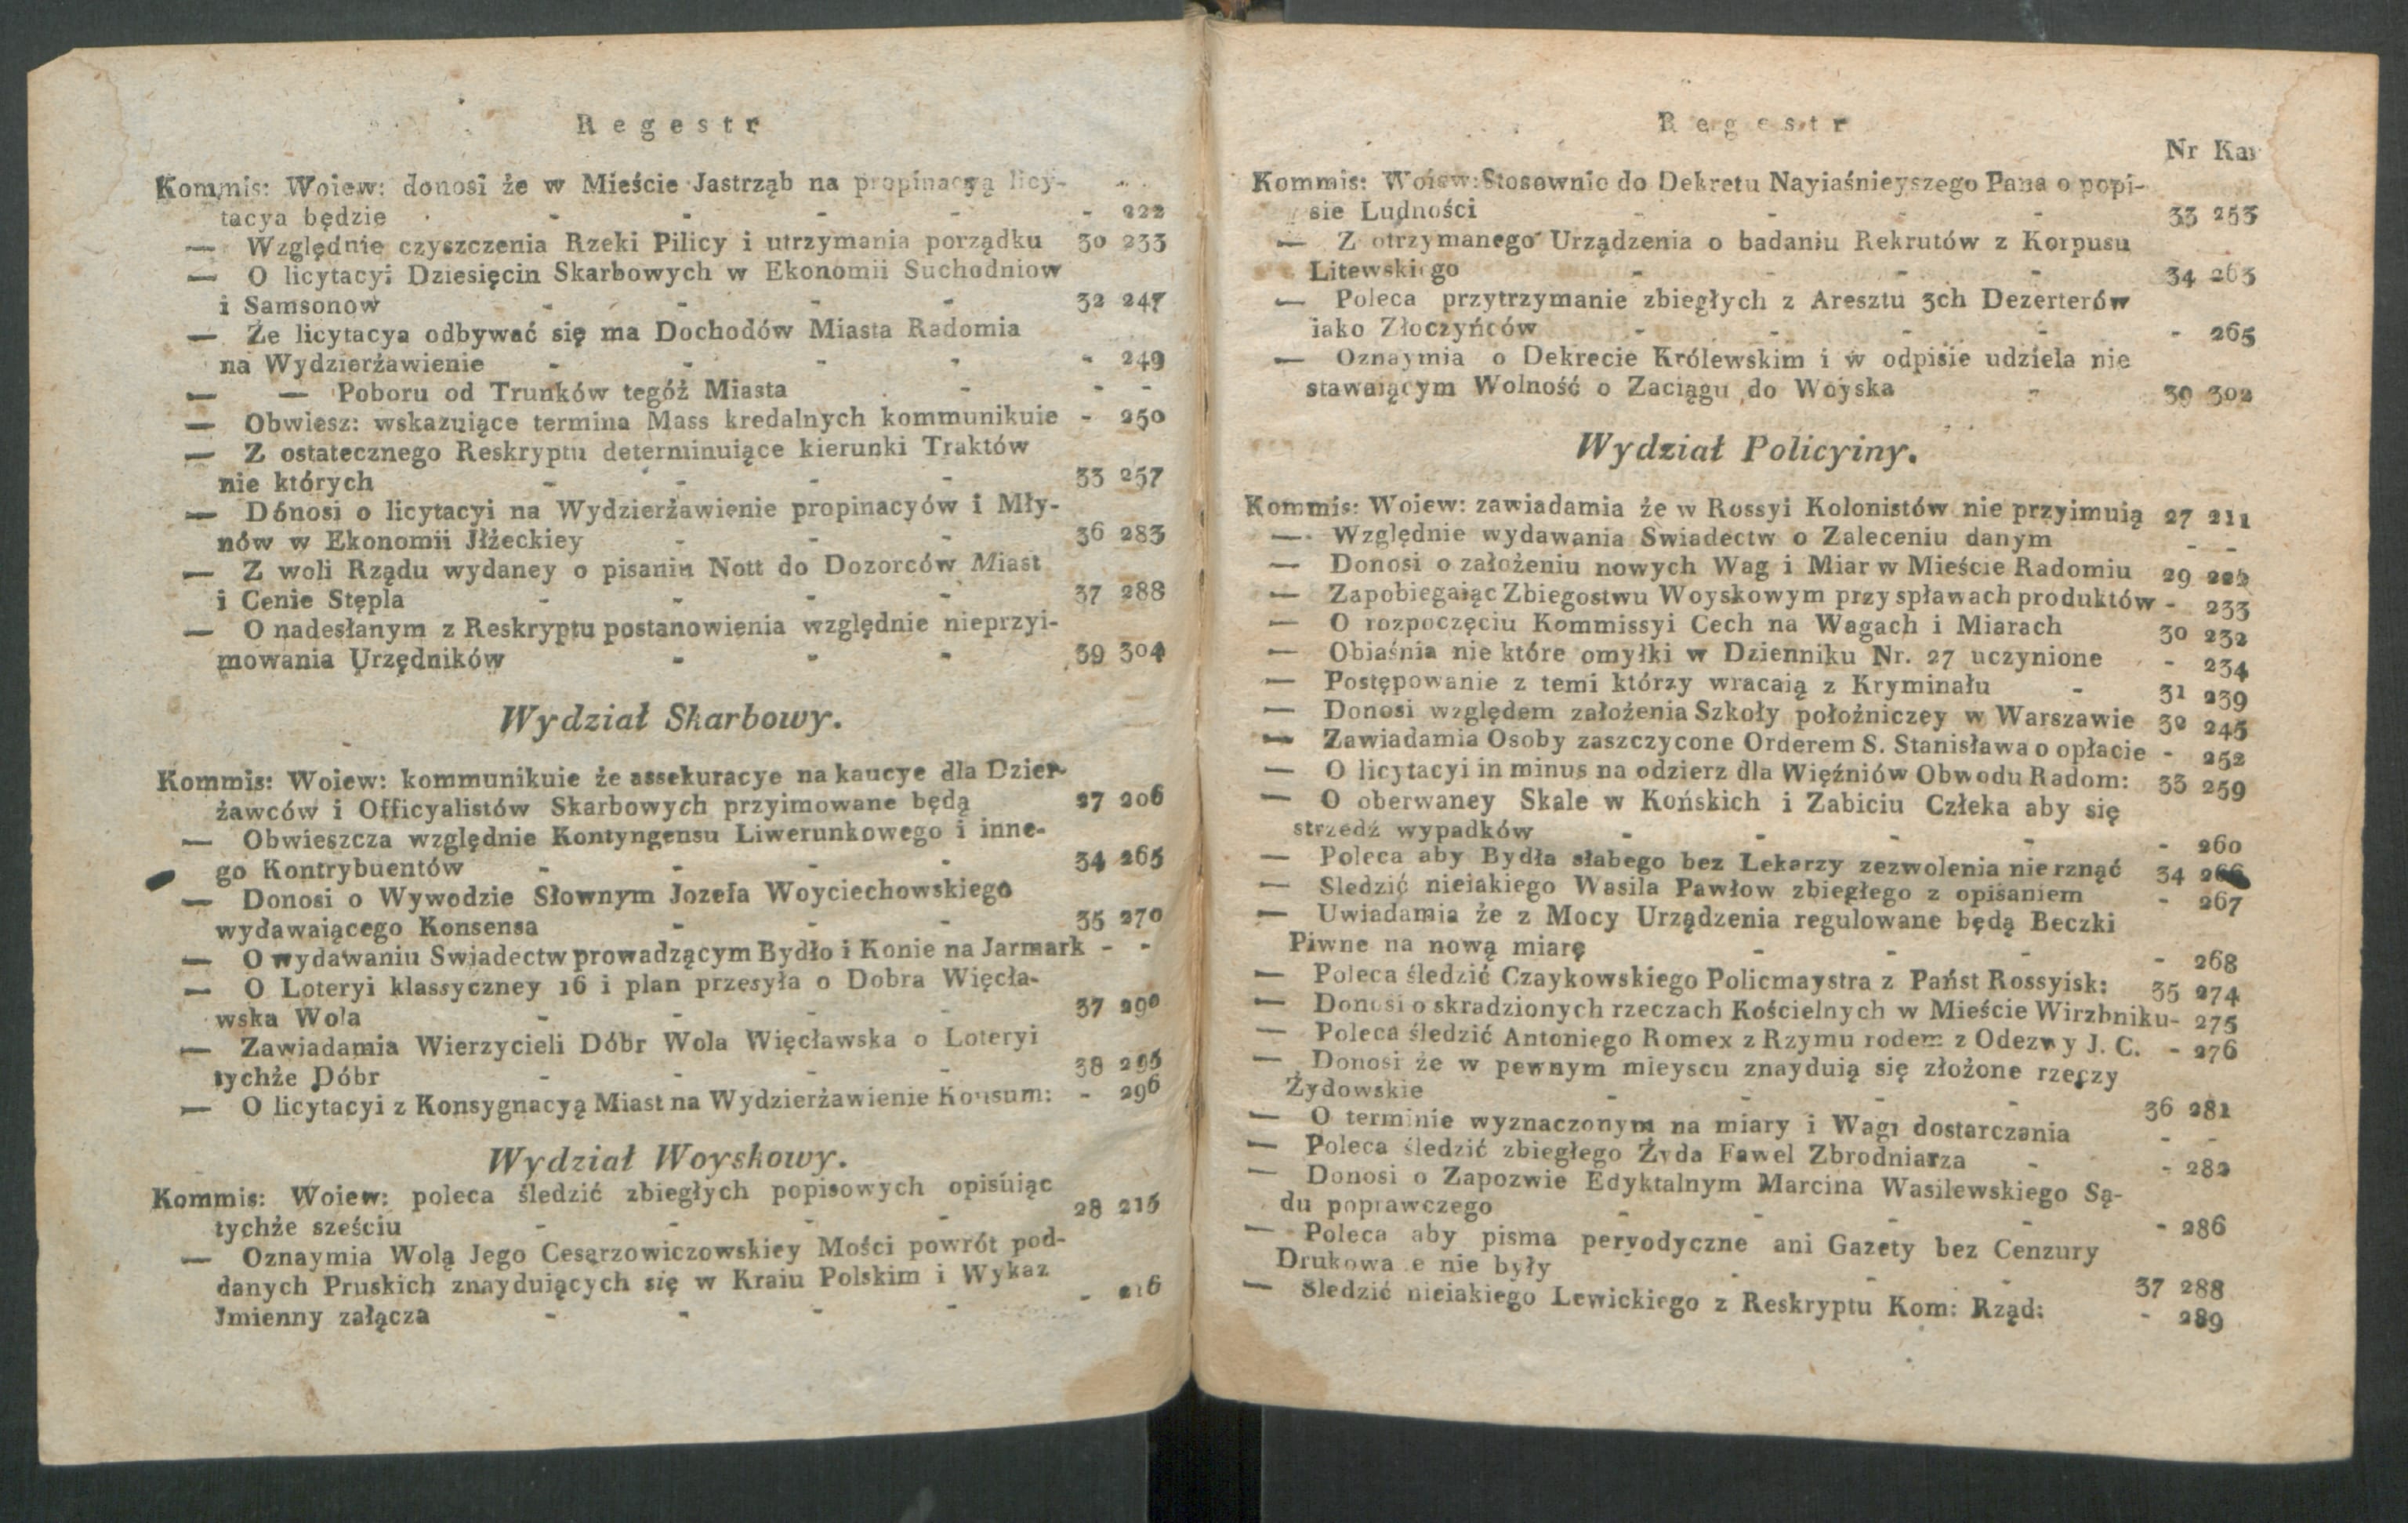 Regestr
Kommis: Woiew: donosi że w Mieście Jastrząb na propinacyą licy-
tacya będzie - - - - - 222
— Względnie czyszczenia Rzeki Pilicy i utrzymania porządku 30 233
— O licytacyi Dziesięcin Skarbowych w Ekonomii Suchodniow
i Samsonow - - - - 32 247
— Że licytacya odbywać się ma Dochodów Miasta Radomia
na Wydzierżawienie - - - - - 249
— — Poboru od Trunków tegóż Miasta - - -
— Obwiesz: wskazuiące termina Mass kredalnych kommunikuie - 250
— Z ostatecznego Reskryptu determinuiące kierunki Traktów
nie których - - - - 33 257
— Dónosi o licytacyi na Wydzierżawienie propinacyów i Mły-
nów w Ekonomii Jłżeckiey - - - 36 283
— Z woli Rządu wydaney o pisaniu Nott do Dozorców Miast
i Cenie Stępla - - - - 37 288
— O nadesłanym z Reskryptu postanowienia względnie nieprzyi-
mowania Urzędników - - - 39 304
Wydział Skarbowy.
Kommis: Woiew: kommunikuie że assekuracye na kaucye dla Dzier-
żawców i Officyalistów Skarbowych przyimowane będą 27 206
— Obwieszcza względnie Kontyngensu Liwerunkowego i inne-
go Kontrybuentów - - - - 34 265
— Donosi o Wywodzie Słownym Jozefa Woyciechowskiego
wydawaiącego Konsensa - - - 35 270
— O wydawaniu Swiadectw prowadzącym Bydło i Konie na Jarmark - -
— O Loteryi klassyczney 16 i plan przesyła o Dobra Więcła-
wska Wola - - - - 37 290
— Zawiadamia Wierzycieli Dóbr Wola Więcławska o Loteryi
tychże Dóbr - - - - 38 295
— O licytacyi z Konsygnacyą Miast na Wydzierżawienie Konsum: - 296
Wydział Woyskowy.
Kommis: Woiew: poleca śledzić zbiegłych popisowych opisuiąc
tychże sześciu - - - - 28 215
— Oznaymia Wolą Jego Cesarzowiczowskiey Mości powrót pod-
danych Pruskich znayduiących się w Kraiu Polskim i Wykaz
Jmienny załącza - - - - - 216
Regestr
Nr Kar
Kommis: Woiew: Stosownie do Dekretu Nayiaśnieyszego Pana o popi-
sie Ludności - - - - 33 253
— Z otrzymanego Urządzenia o badaniu Rekrutów z Korpusu
Litewskiego - - - - 34 263
— Poleca przytrzymanie zbiegłych z Aresztu 3ch Dezerterów
iako Złoczyńców - - - - - 265
— Oznaymia o Dekrecie Królewskim i w odpisie udziela nie
stawaiącym Wolność o Zaciągu do Woyska - 39 302
Wydział Policyiny.
Kommis: Woiew: zawiadamia że w Rossyi Kolonistów nie przyimuią 27 211
— Względnie wydawania Swiadectw o Zaleceniu danym - -
— Donosi o założeniu nowych Wag i Miar w Mieście Radomiu 29
— Zapobiegaiąc Zbiegostwu Woyskowym przy spławach produktów - 233
— O rozpoczęciu Kommissyi Cech na Wagach i Miarach 30 232
— Obiaśnia nie które omyłki w Dzienniku Nr. 27 uczynione - 234
— Postępowanie z temi którzy wracaią z Kryminału - 31 239
— Donosi względem założenia Szkoły położniczey w Warszawie 32 245
— Zawiadamia Osoby zaszczycone Orderem S. Stanisława o opłacie - 252
— O licytacyi in minus na odzierz dla Więźniów Obwodu Radom: 33 259
— O oberwaney Skale w Końskich i Zabiciu Człeka aby się
strzedź wypadków - - - - - 260
— Poleca aby Bydła słabego bez Lekarzy zezwolenia nie rznąć 34
— Sledzić nieiakiego Wasila Pawłow zbiegłego z opisaniem - 267
— Uwiadamia że z Mocy Urządzenia regulowane będą Beczki
Piwne na nową miarę - - - - 268
— Poleca śledzić Czaykowskiego Policmaystra z Państ Rossyisk: 35 274
— Donosi o skradzionych rzeczach Kościelnych w Mieście Wirzbniku- 275
— Poleca śledzić Antoniego Romex z Rzymu rodem z Odezwy J. C. - 276
— Donosi że w pewnym mieyscu znayduią się złożone rzeczy
Żydowskie - - - - 36 281
— O terminie wyznaczonym na miary i Wagi dostarczania - -
— Poleca śledzić zbiegłego Żyda Fawel Zbrodniarza - - 282
— Donosi o Zapozwie Edyktalnym Marcina Wasilewskiego Są-
du poprawczego - - - - - 286
— Poleca aby pisma peryodyczne ani Gazety bez Cenzury
Drukowa e nie były - - - 37 288
— Sledzić nieiakiego Lewickiego z Reskryptu Kom: Rząd: - 289